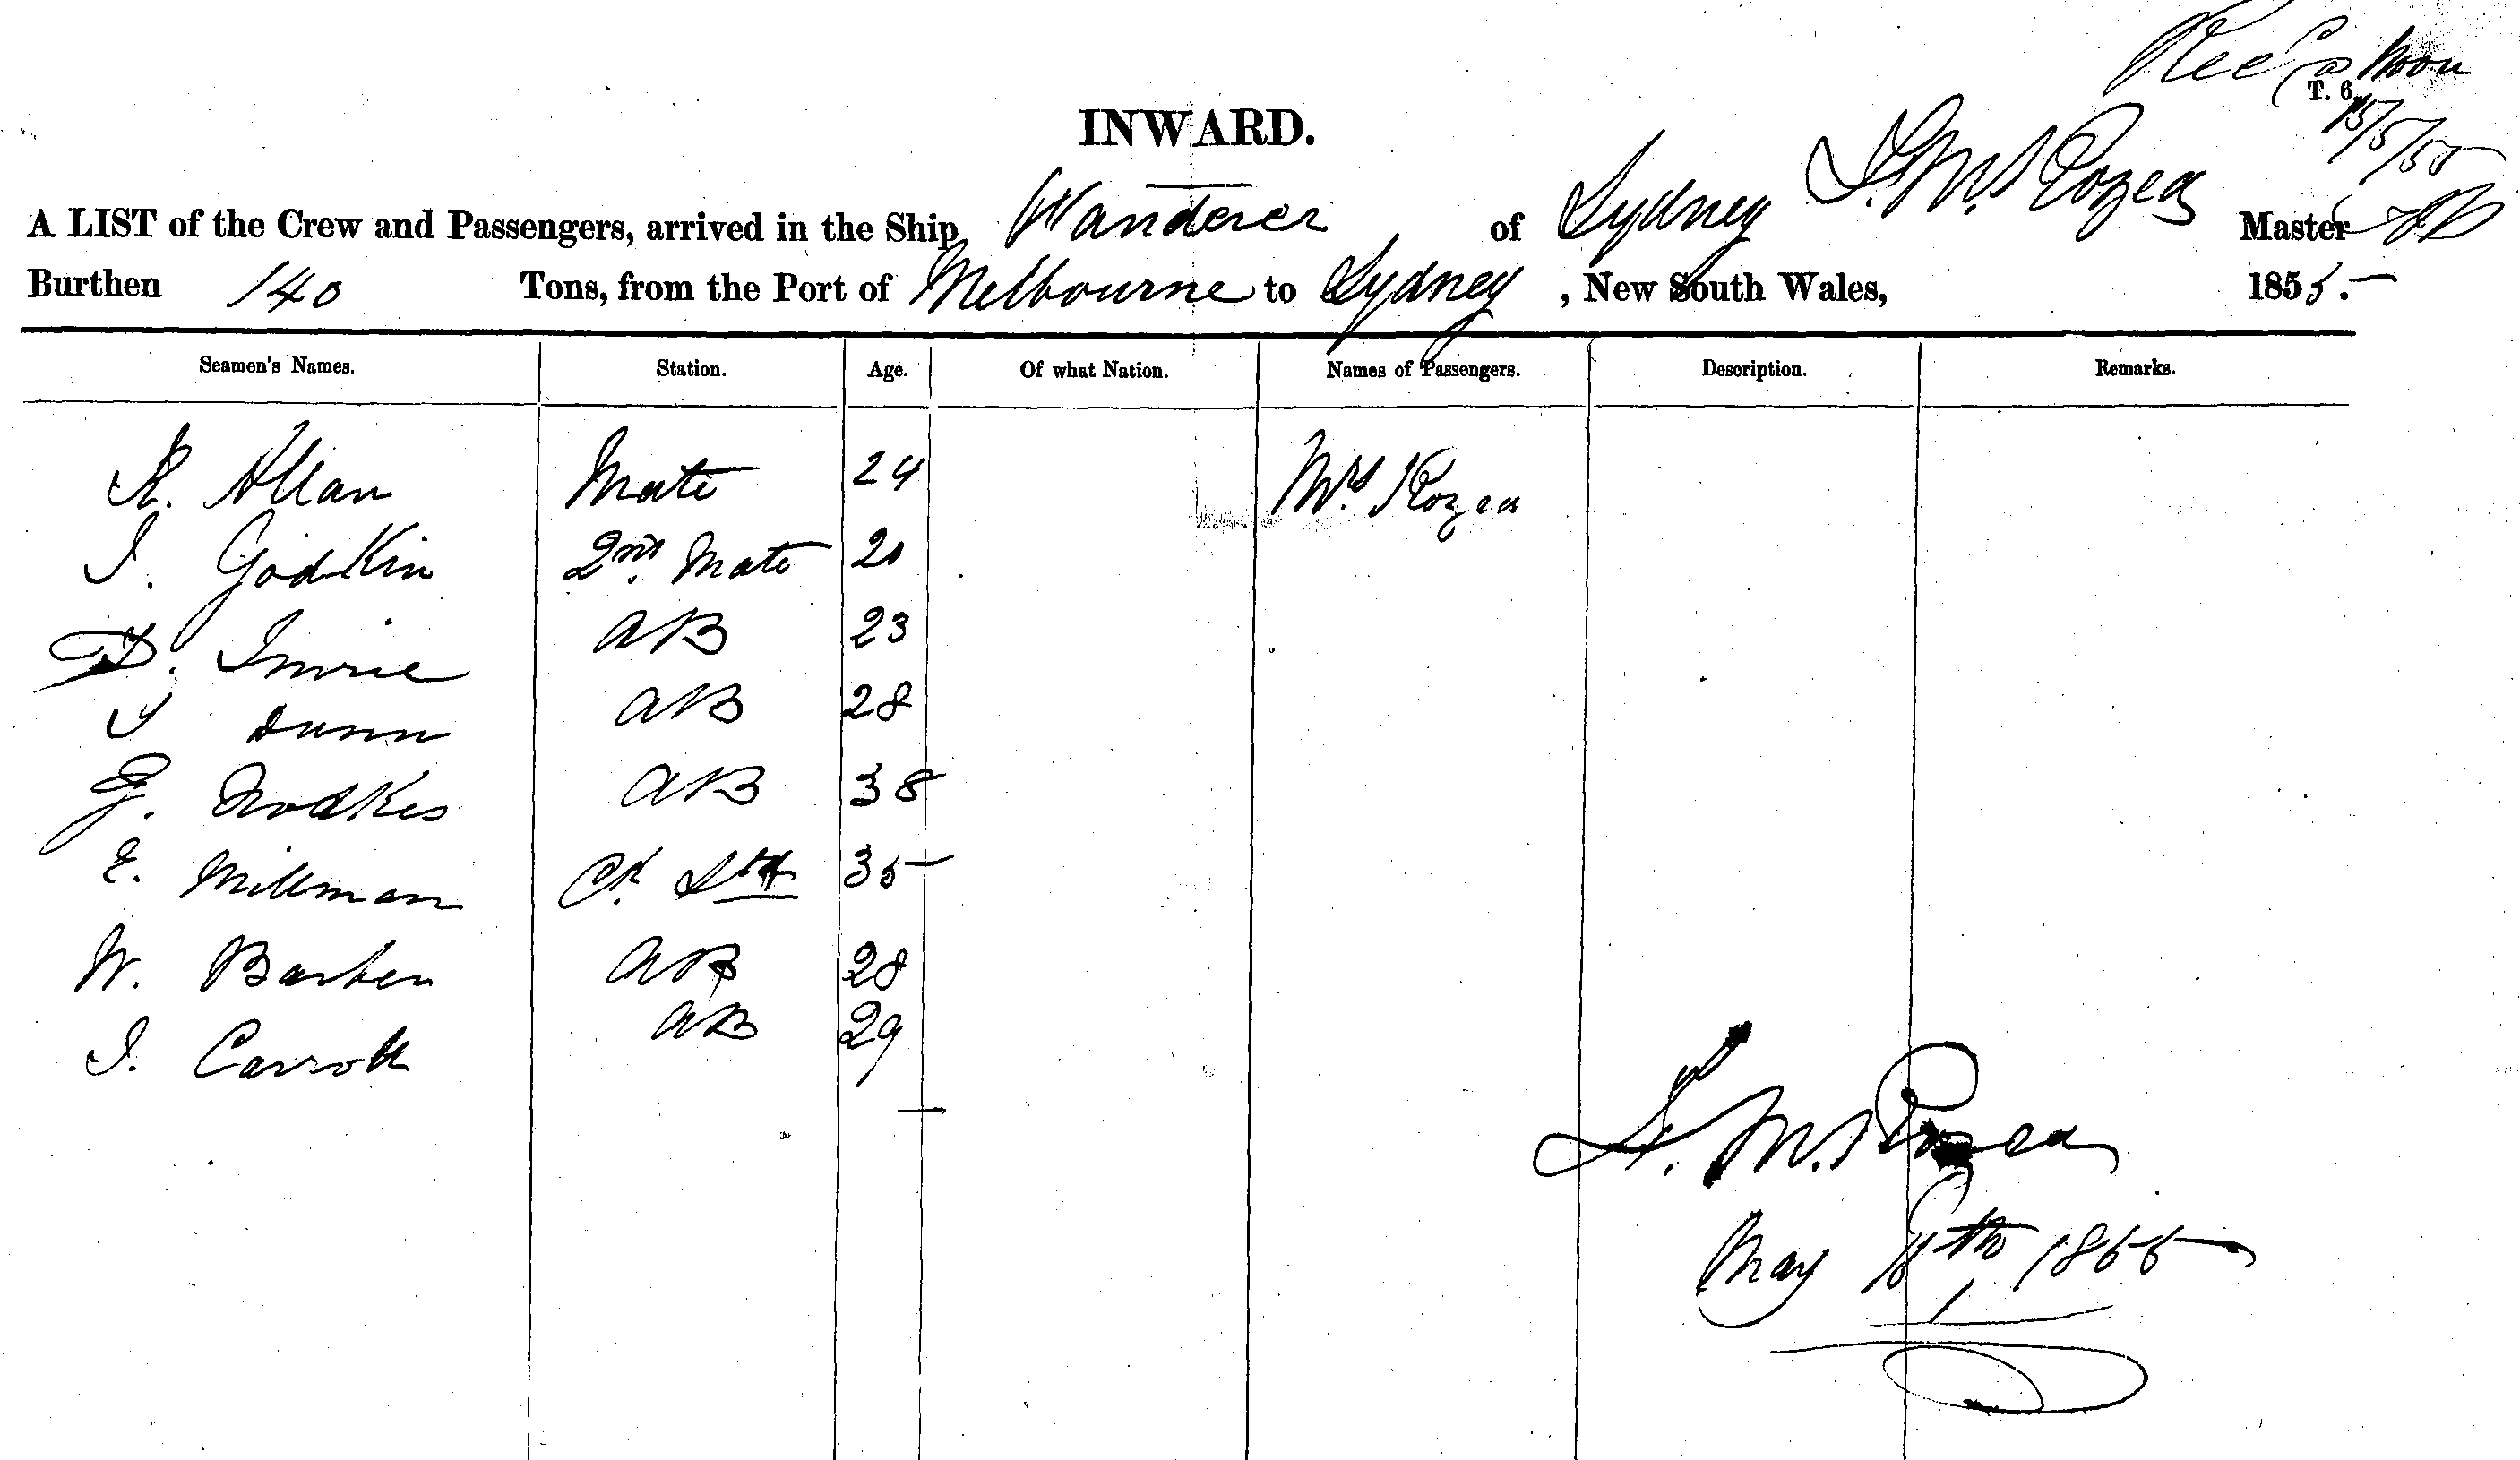 Noon
T. 6.
15/5/55
INWARD.
A LIST of the Crew and Passengers, arrived in the Ship Wanderer of Sydney Rozea Master
Burthen 140 Tons, from the Port of Melbourne to Sydney, New South Wales, 1855.
Seamen's Names. Station. Age. Of what Nation. Names of Passengers. Description. Remarks.
R. Allan Mate 24 Mrs Rozea
J. Godkin 2nd Mate 21
D. Imrie AB 23
J Dunn AB 28
G. AB 38
E. Millman 35
W. Barber AB 28
J. Carroll AB 29
M. Rozea
May 1855